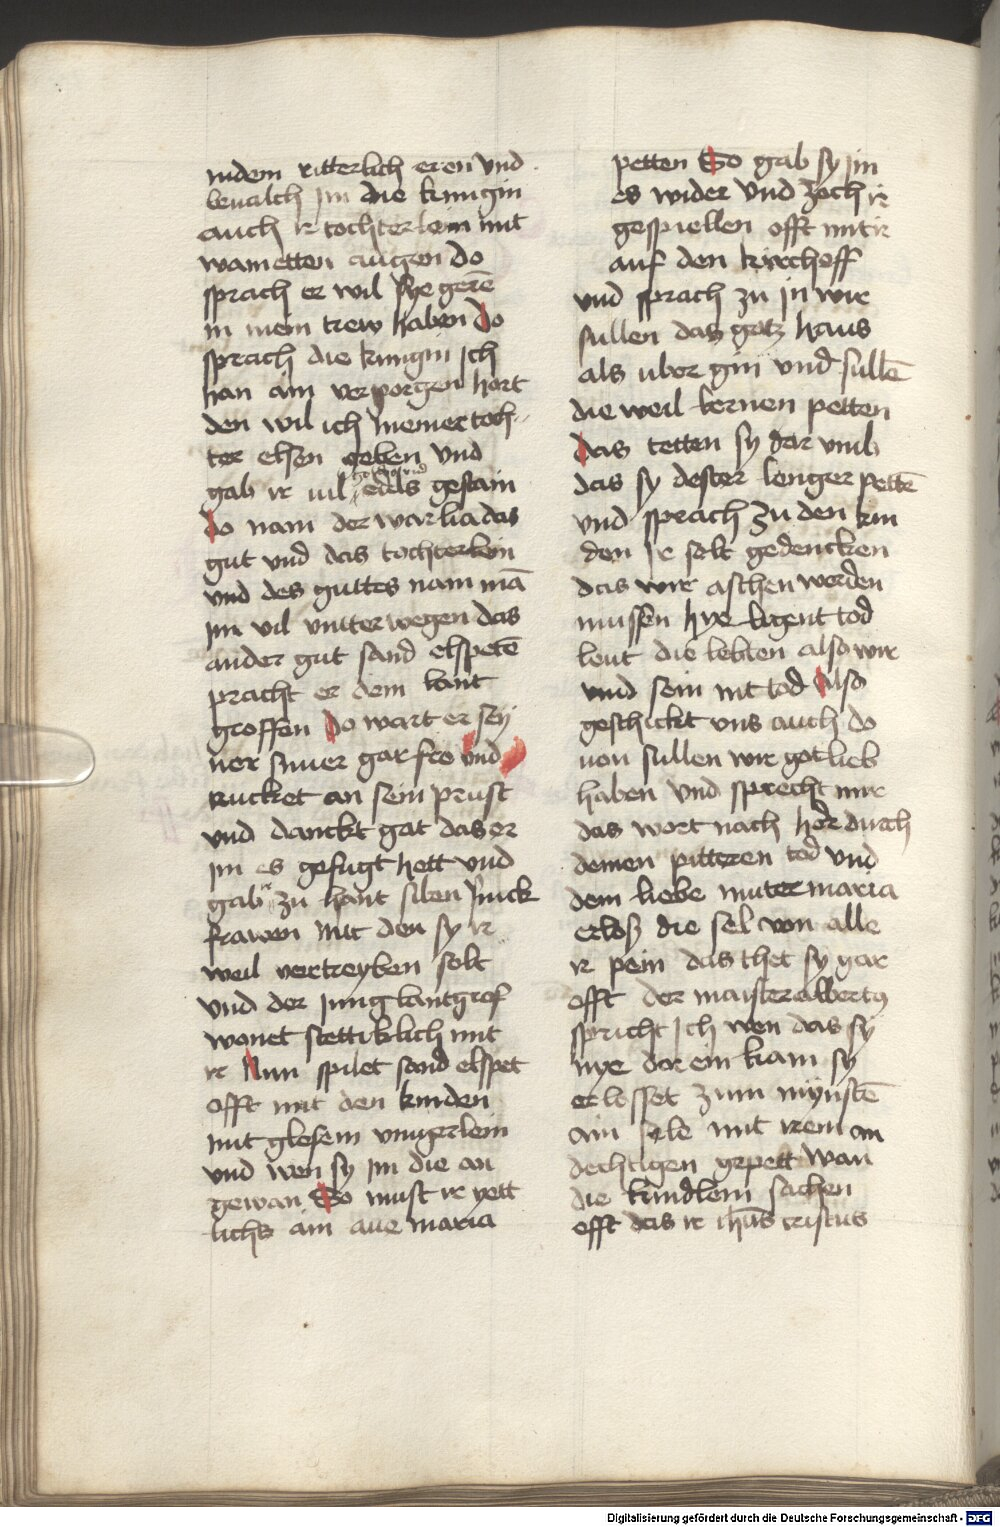 indem ritterlich eren vnd
beualch im die kunigin
auch ir tochterlein mit
wainetten augen do
sprach er wil sye gerē
in mein trew haben do
sprach die kunigin ich
han ain verporgen hort
den wil ich meiner toch
ter elsen geben vnd
gab ir uil edels gestain
do nam der war lia das
gut vnd das tochterlein
vnd des guttes nam mā
im vil vnter wegen das
ander gut sand elspetē
pracht er dem lant
groffen do wart er sey
ner snuer gar fro vnd
rucket an sein prust
vnd danckt got das er
im es gefugt hett vnd
gab ir zu hant siben junck
frawen mit den sy ir
weil vertreyben solt
vnd der jung lantgrof
wonet stettiklich mit
ir Nun spilet sand elspet
offt mit den kinden
mit glesein vingerlein
vnd wen sy im die an
gewan So must ir yett
lichs ain aue maria
petten So gab sy im
es wider vnd zoch ir
gespiellen offt mit ir
auf den kirchoff
vnd sprach zu in wir
sullen das gotz haus
als vber gin vnd sullē
die weil lernen petten
das tetten sy dar vmb
das sy dester lenger pettē
vnd sprach zu den kin
den ir solt gedencken
das wir aschen werden
mussen hye ligent tod
leut die lebten also wir
vnd sein nit tod also
geschickt vns auch do
uon sullen wir got lieb
haben vnd sprecht mir
das wort nach her durch
deinen pitteren tod vnd
dein liebe muter maria
erlosz die sel von alle
ir pein das thet sy gar
offt der maister albertus
spricht ich wen das sy
nye dor ein kam sy
erlosset zum mynstē
ain sele mit irem an
dechtigen gepett wan
die kindlein sachen
offt das ir ihūs cristus
Digitalisierung gefördert durch die Deutsche Forschungsgemeinschaft - DFG